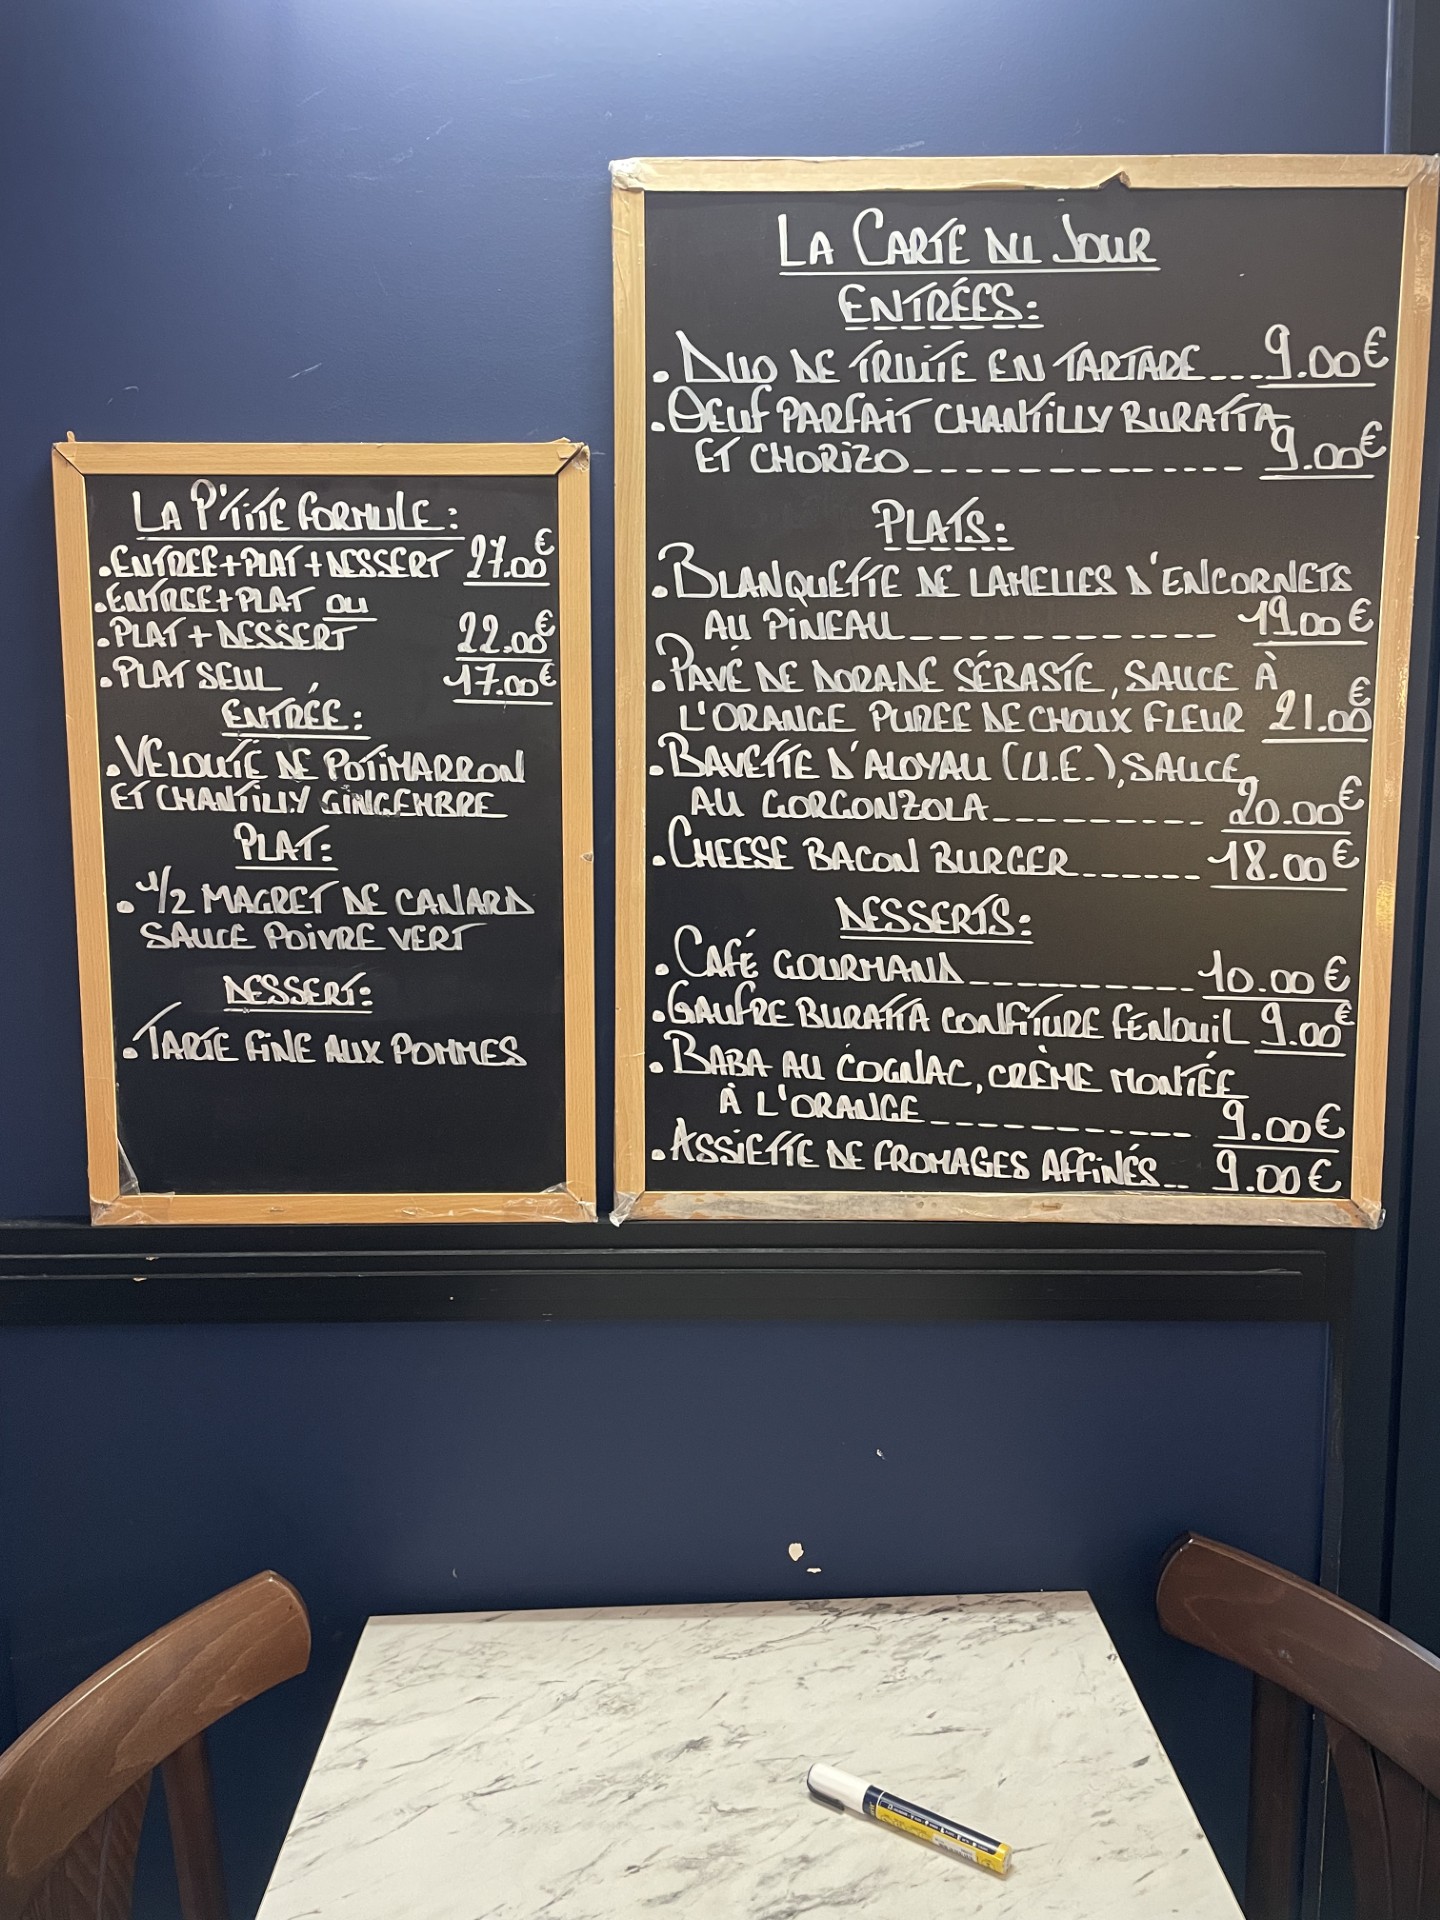 LA P'TITE FORMULE:
.ENTREE+PLAT+DESSERT 27.00€
.ENTREE+PLAT OU
.PLAT+DESSERT 22.00€
.PLAT SEUL 17.00€
ENTRÉE:
.VELOUTÉ DE POTIMARRON
ET CHANTILLY GINGEMBRE
PLAT:
.1/2 MAGRET DE CANARD
SAUCE POIVRE VERT
DESSERT:
.TARTE FINE AUX POMMES
LA CARTE DU JOUR
ENTRÉES:
.DUO DE TRUITE EN TARTARE___9.00€
.OEUF PARFAIT CHANTILLY BURATTA
ET CHORIZO______________9.00€
PLATS:
.BLANQUETTE DE LAMELLES D'ENCORNETS
AU PINEAU_____________19.00€
.PAVÉ DE DORADE SÉBASTE, SAUCE À
L'ORANGE PURÉE DE CHOUX FLEUR 21.00€
.BAVETTE D'ALOYAU (U.E.), SAUCE
AU GORGONZOLA_________20.00€
.CHEESE BACON BURGER______18.00€
DESSERTS:
.CAFÉ GOURMAND__________10.00€
.GAUFRE BURATTA CONFITURE FENOUIL 9.00€
.BABA AU COGNAC, CRÈME MONTÉE
À L'ORANGE___________9.00€
.ASSIETTE DE FROMAGES AFFINÉS__9.00€